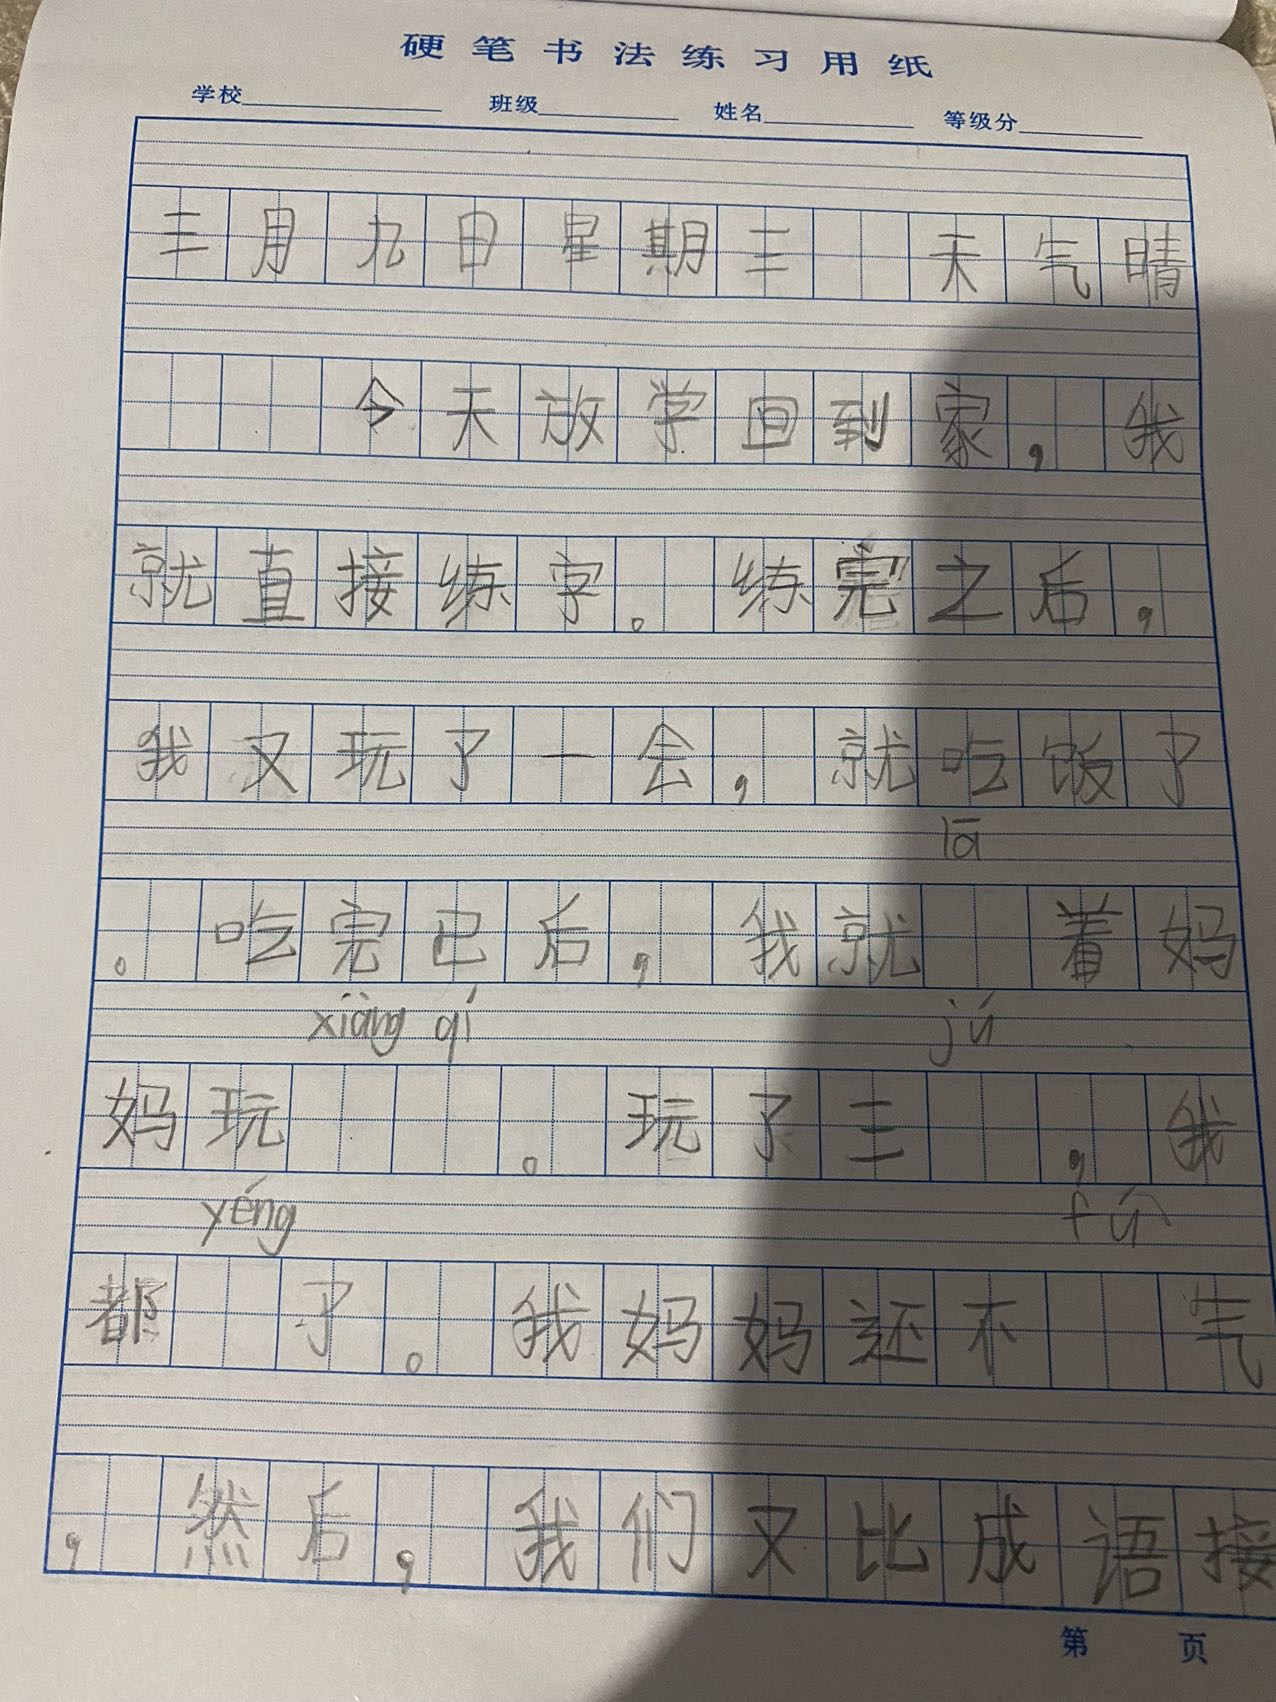 硬笔书法练习用纸
学校 班级 姓名 等级分
三月九日星期三 天气晴
今天放学回到家，我
就直接练字。练完之后，
我又玩了一会，就吃饭了
lā
。吃完已后，我就 着妈
xiàng qí jú
妈玩 。玩了三 ，我
yéng fú
都 了。我妈妈还不 气
，然后，我们又比成语接
第 页